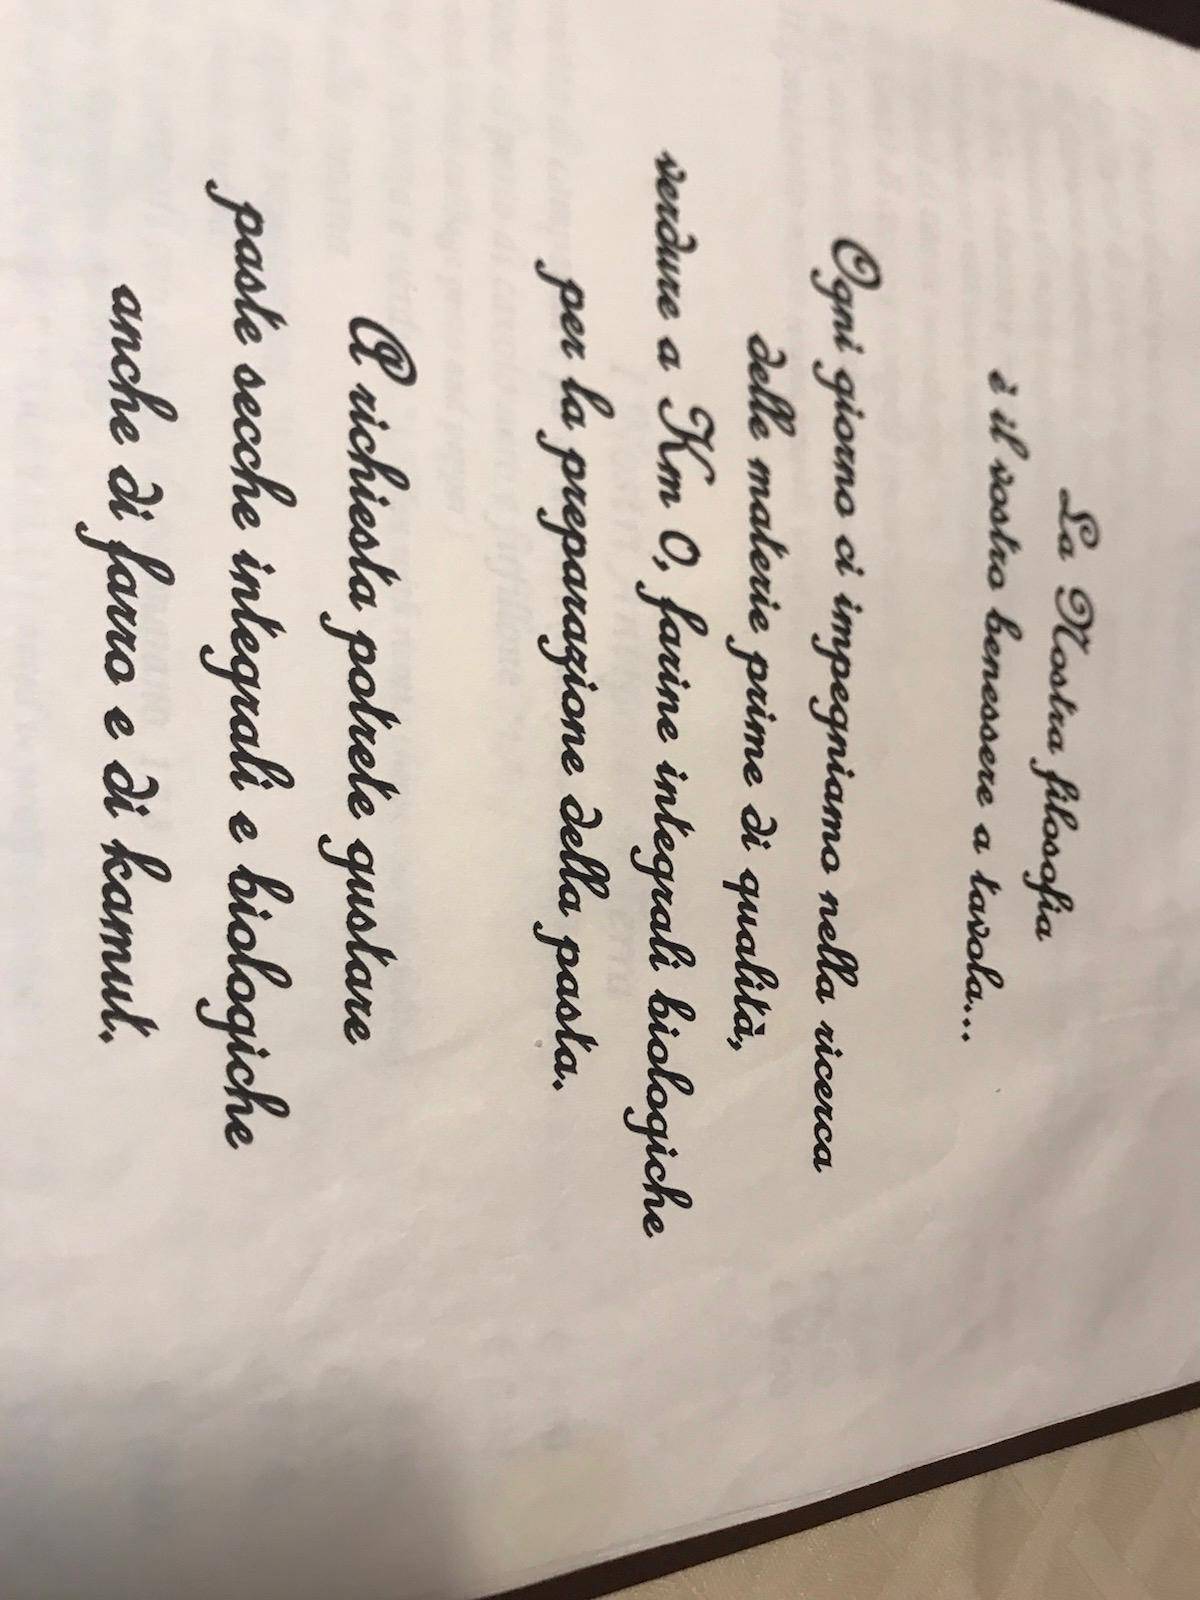 La Nostra filosofia
è il vostro benessere a tavola...
Ogni giorno ci impegniamo nella ricerca
delle materie prime di qualità,
verdure a Km 0, farine integrali biologiche
per la preparazione della pasta.
A richiesta potrete gustare
paste secche integrali e biologiche
anche di farro e di kamut.